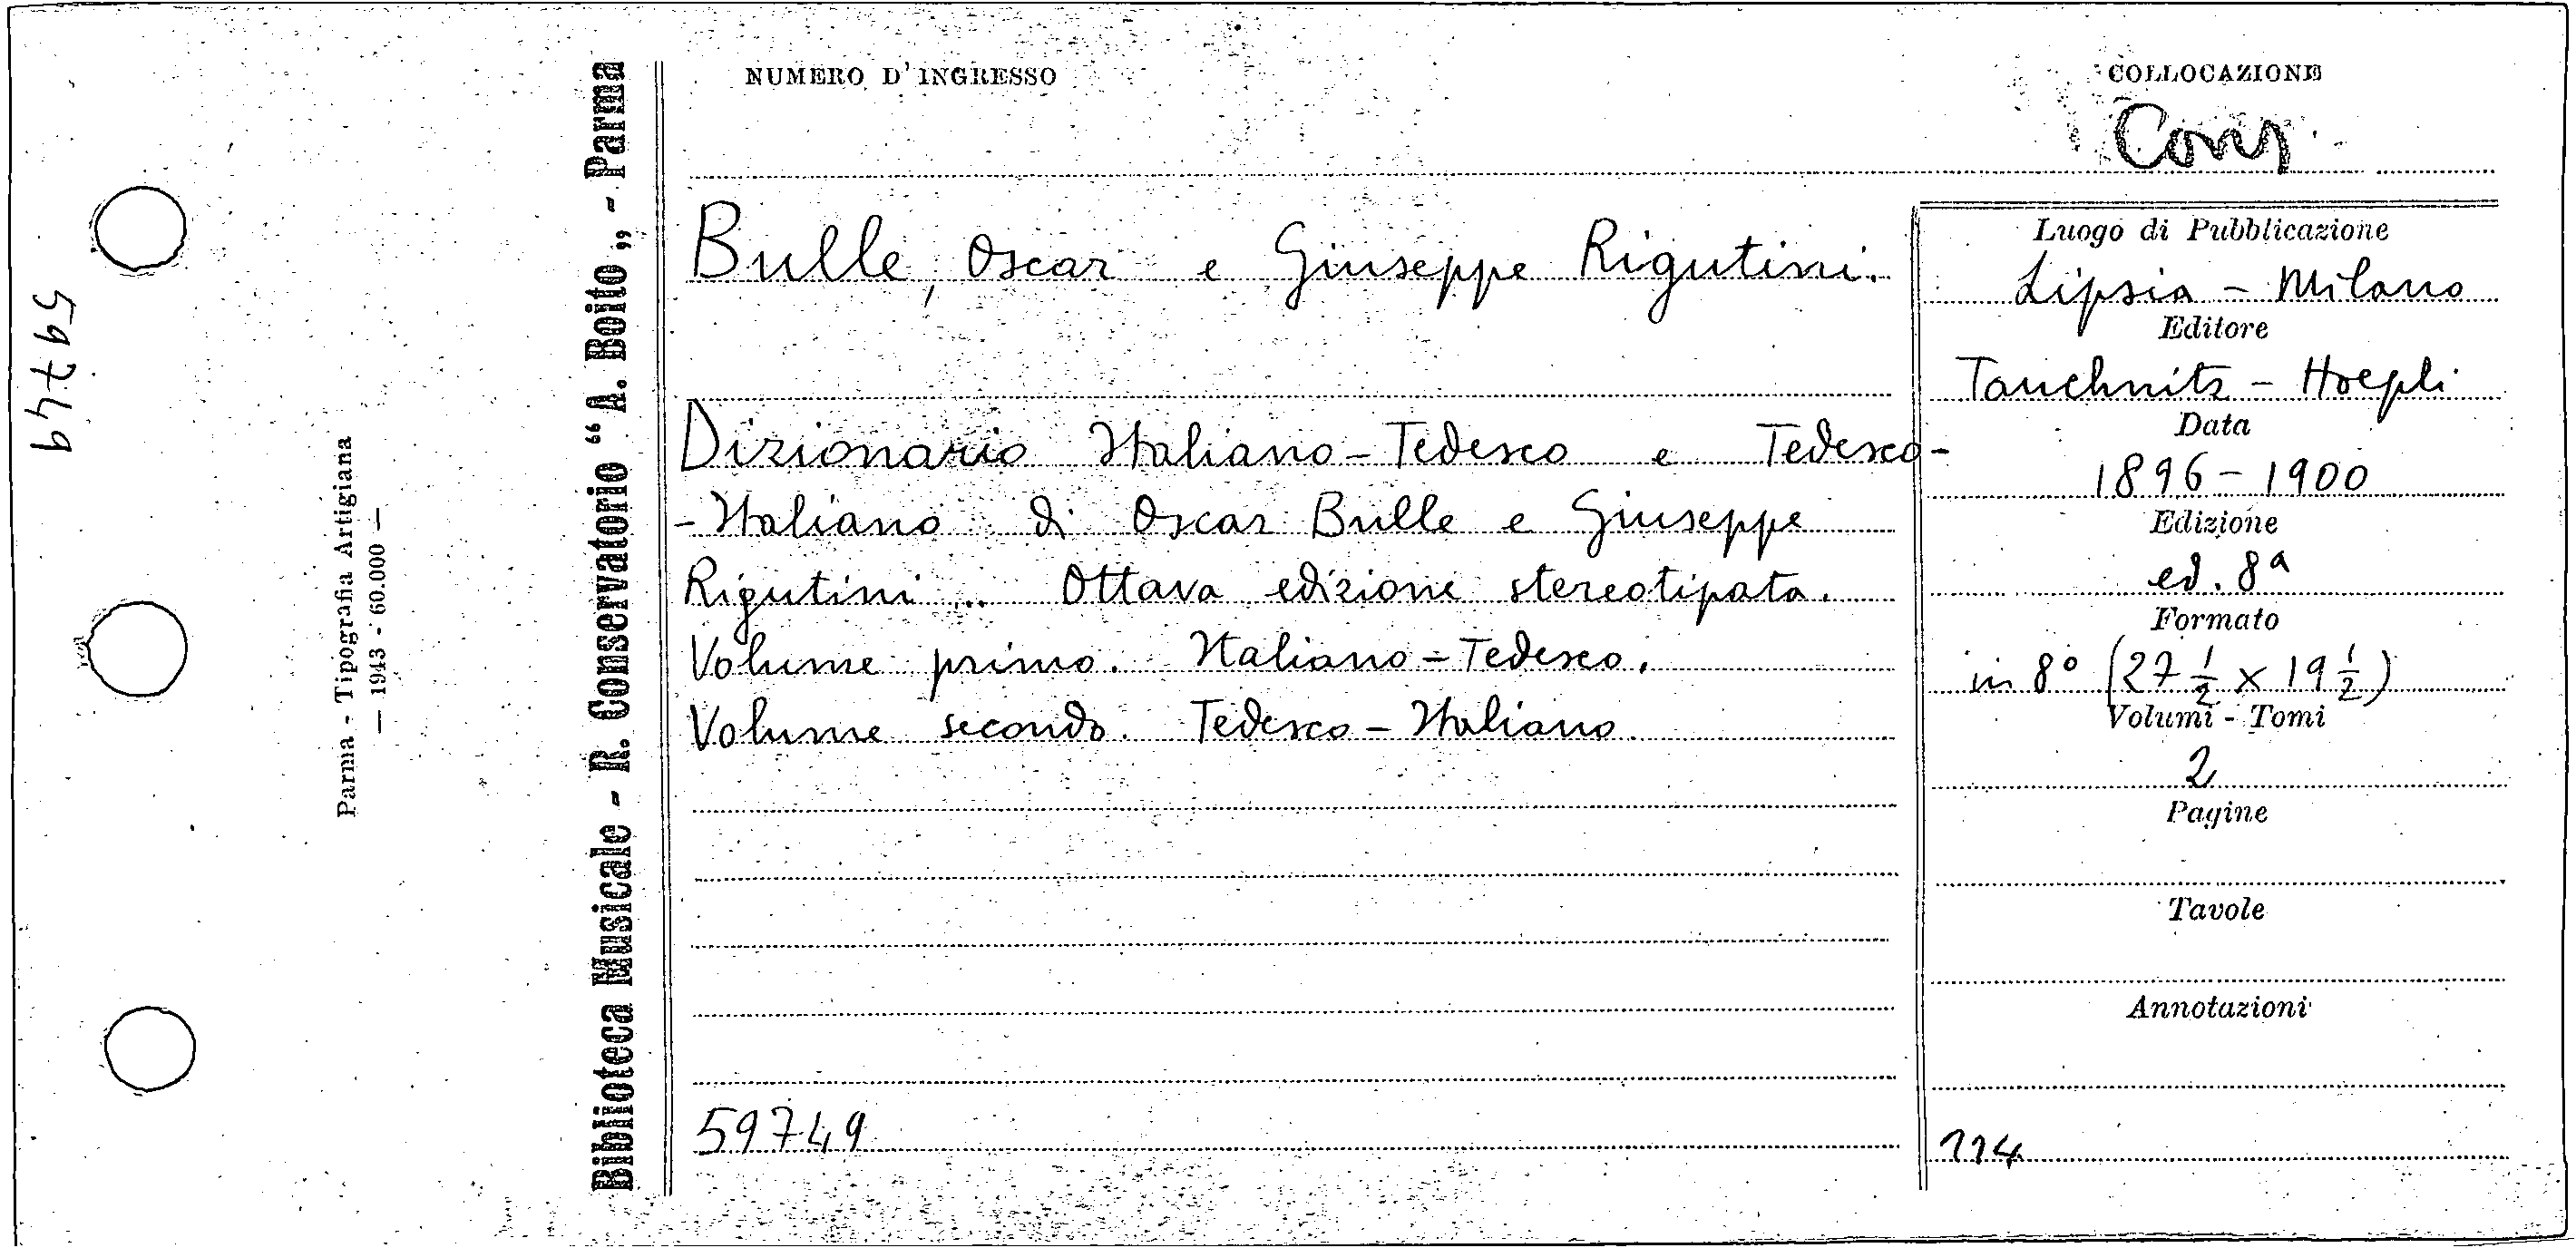 59749
Parma - Tipografia Artigiana
— 1943 - 60.000 —
Biblioteca Musicale - R. Conservatorio “A. Boito„ - Parma
NUMERO D'INGRESSO
COLLOCAZIONE
Cons
Bulle, Oscar e Giuseppe Rigutini.
Dizionario Italiano-Tedesco e Tedesco-
-Italiano di Oscar Bulle e Giuseppe
Rigutini .. Ottava edizione stereotipata.
Volume primo. Italiano-Tedesco.
Volume secondo. Tedesco-Italiano.
59749
Luogo di Pubblicazione
Lipsia - Milano
Editore
Tauchnitz - Hoepli
Data
1896-1900
Edizione
ed. 8ª
Formato
in 8° (27 1/2 x 19 1/2)
Volumi - Tomi
2
Pagine
Tavole
Annotazioni
114